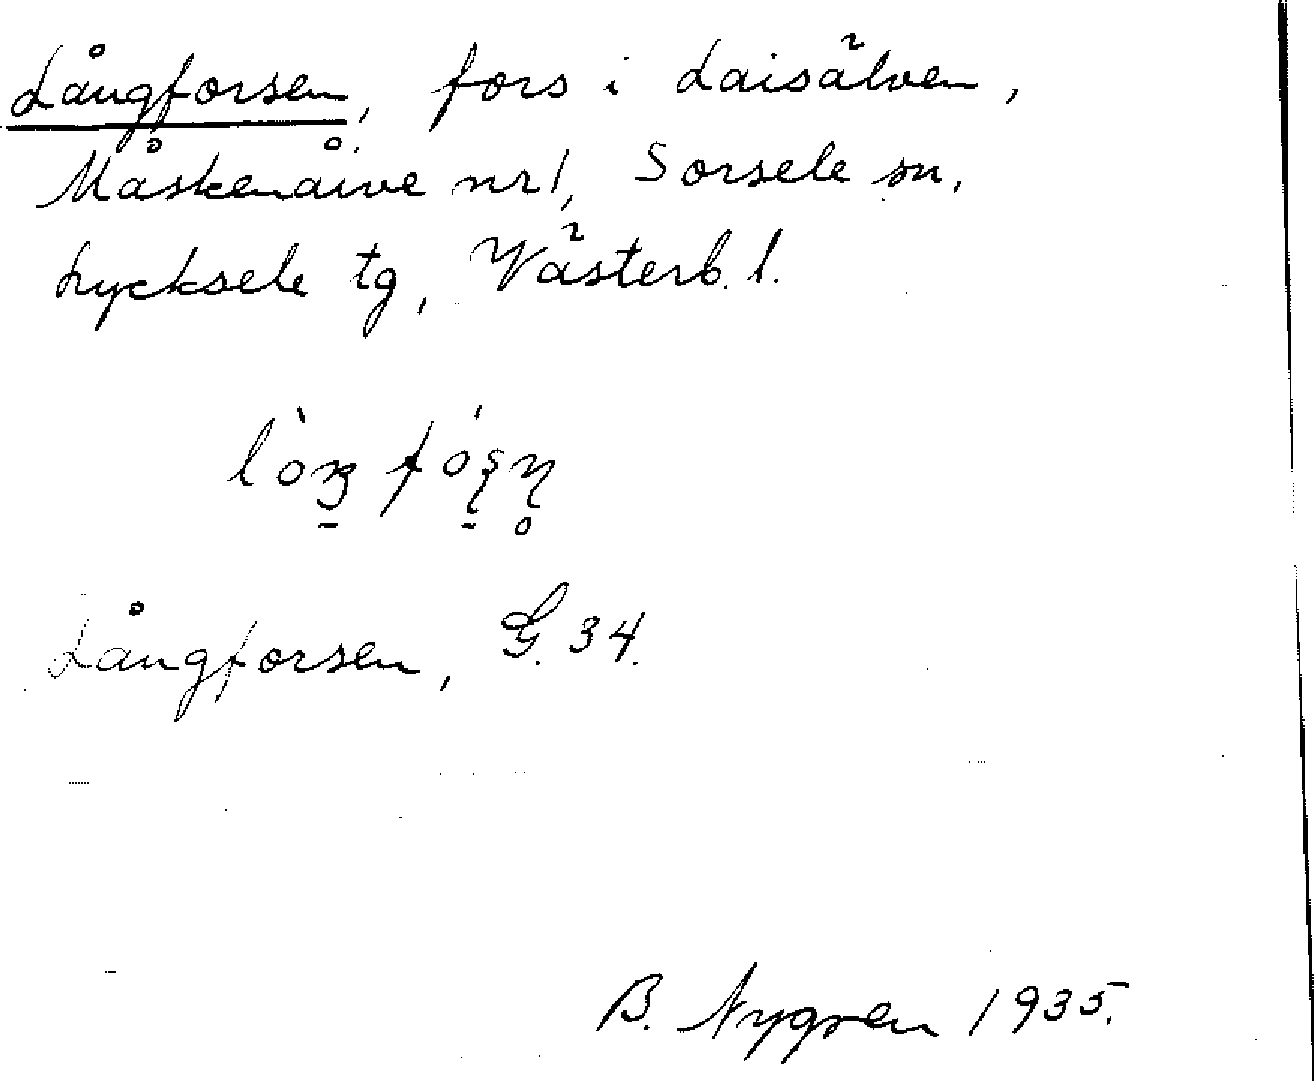 Långforsen, fors i Laisälven,
Måskenåive nr 1, Sorsele sn,
Lycksele tg, Västerb. l.
Långforsen, G. 34.
B. Nygren 1935.